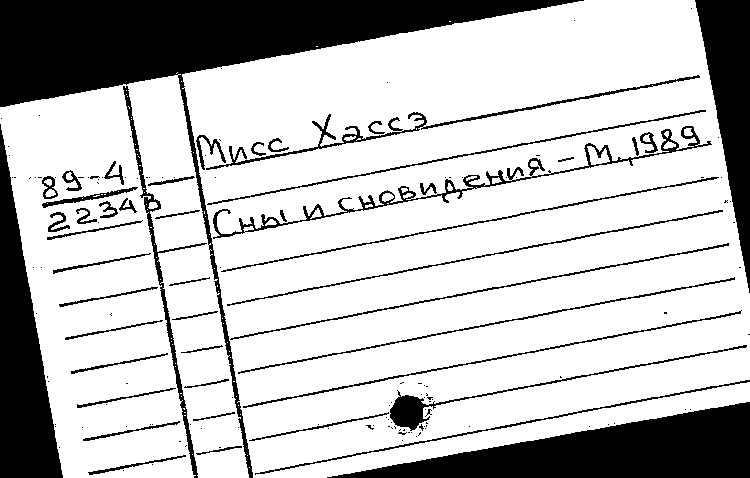 Мисс Хассэ
89-4
22343
Сны и сновидения. - М., 1989.